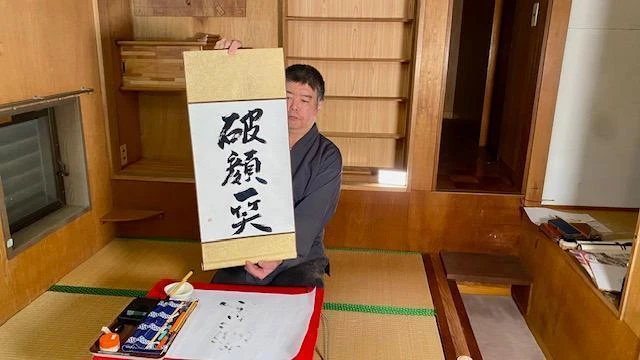 破顔一笑